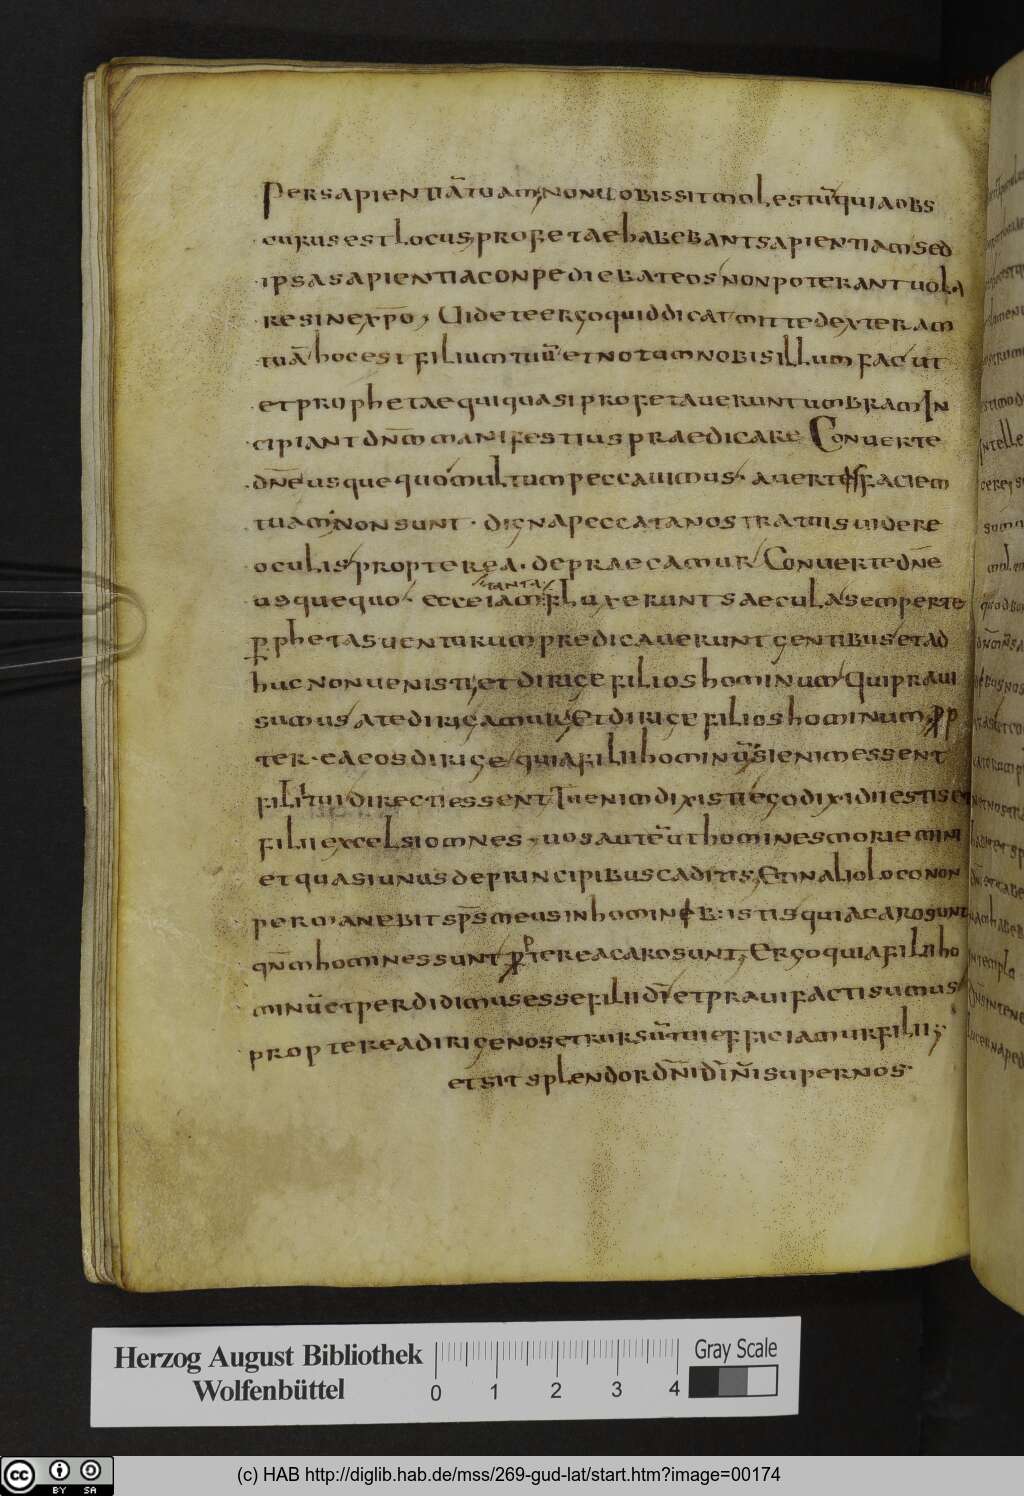 Persapientiātuam; nonuobissitmolestū quiaobs
curusestlocus; profetaehabebantsapientiamsed
ipsasapientiaconpediebateos nonpoterantuola
resinexp̄o, Uideteergoquiddicat mittedexteram
tuā hocest filiumtuū etnotumnobisillum facut
etprophetaequiquasiprofetaueruntumbramIn
cipiantdn̄m manifestiuspraedicare Conuerte
dn̄eusquequo multumpeccauimus· auerte faciem
tuam; nonsunt· dignapeccatanostratuisuidere
oculis propterea· depraecamur Conuertedn̄e
usquequo· ecceiam fluxeruntsaecula semperte
tanta
p̱phetasuenturumpredicaueruntgentibus etad
hucnonuenisti; etdirigefilioshominum Quipraui
sumus atedirigamur; Etdirigefilioshominum, prop
ter·eaeosdirige quiafiliihominū sienimessent
filii tui directiessent Tuenimdixisti egodixidiiestis et
filiiexcelsiomnes· uosautē uthominesmoriemini
etquasiunusdeprincipibuscaditis, Etinalioloconon
permanebitsp̄smeusinhominib: istisquiacarosunt
qn̄mhominessunt p̱tereacarosunt, Ergoquiafiliiho
minūetperdidimusessefiliidī etprauifactisumus
propterea dirigenosetrursū tuiefficiamurfilii;
etsitsplendordn̄idīn̄isupernos·
Herzog August Bibliothek
Wolfenbüttel
0 1 2 3 4
Gray Scale
cc BY SA
(c) HAB http://diglib.hab.de/mss/269-gud-lat/start.htm?image=00174